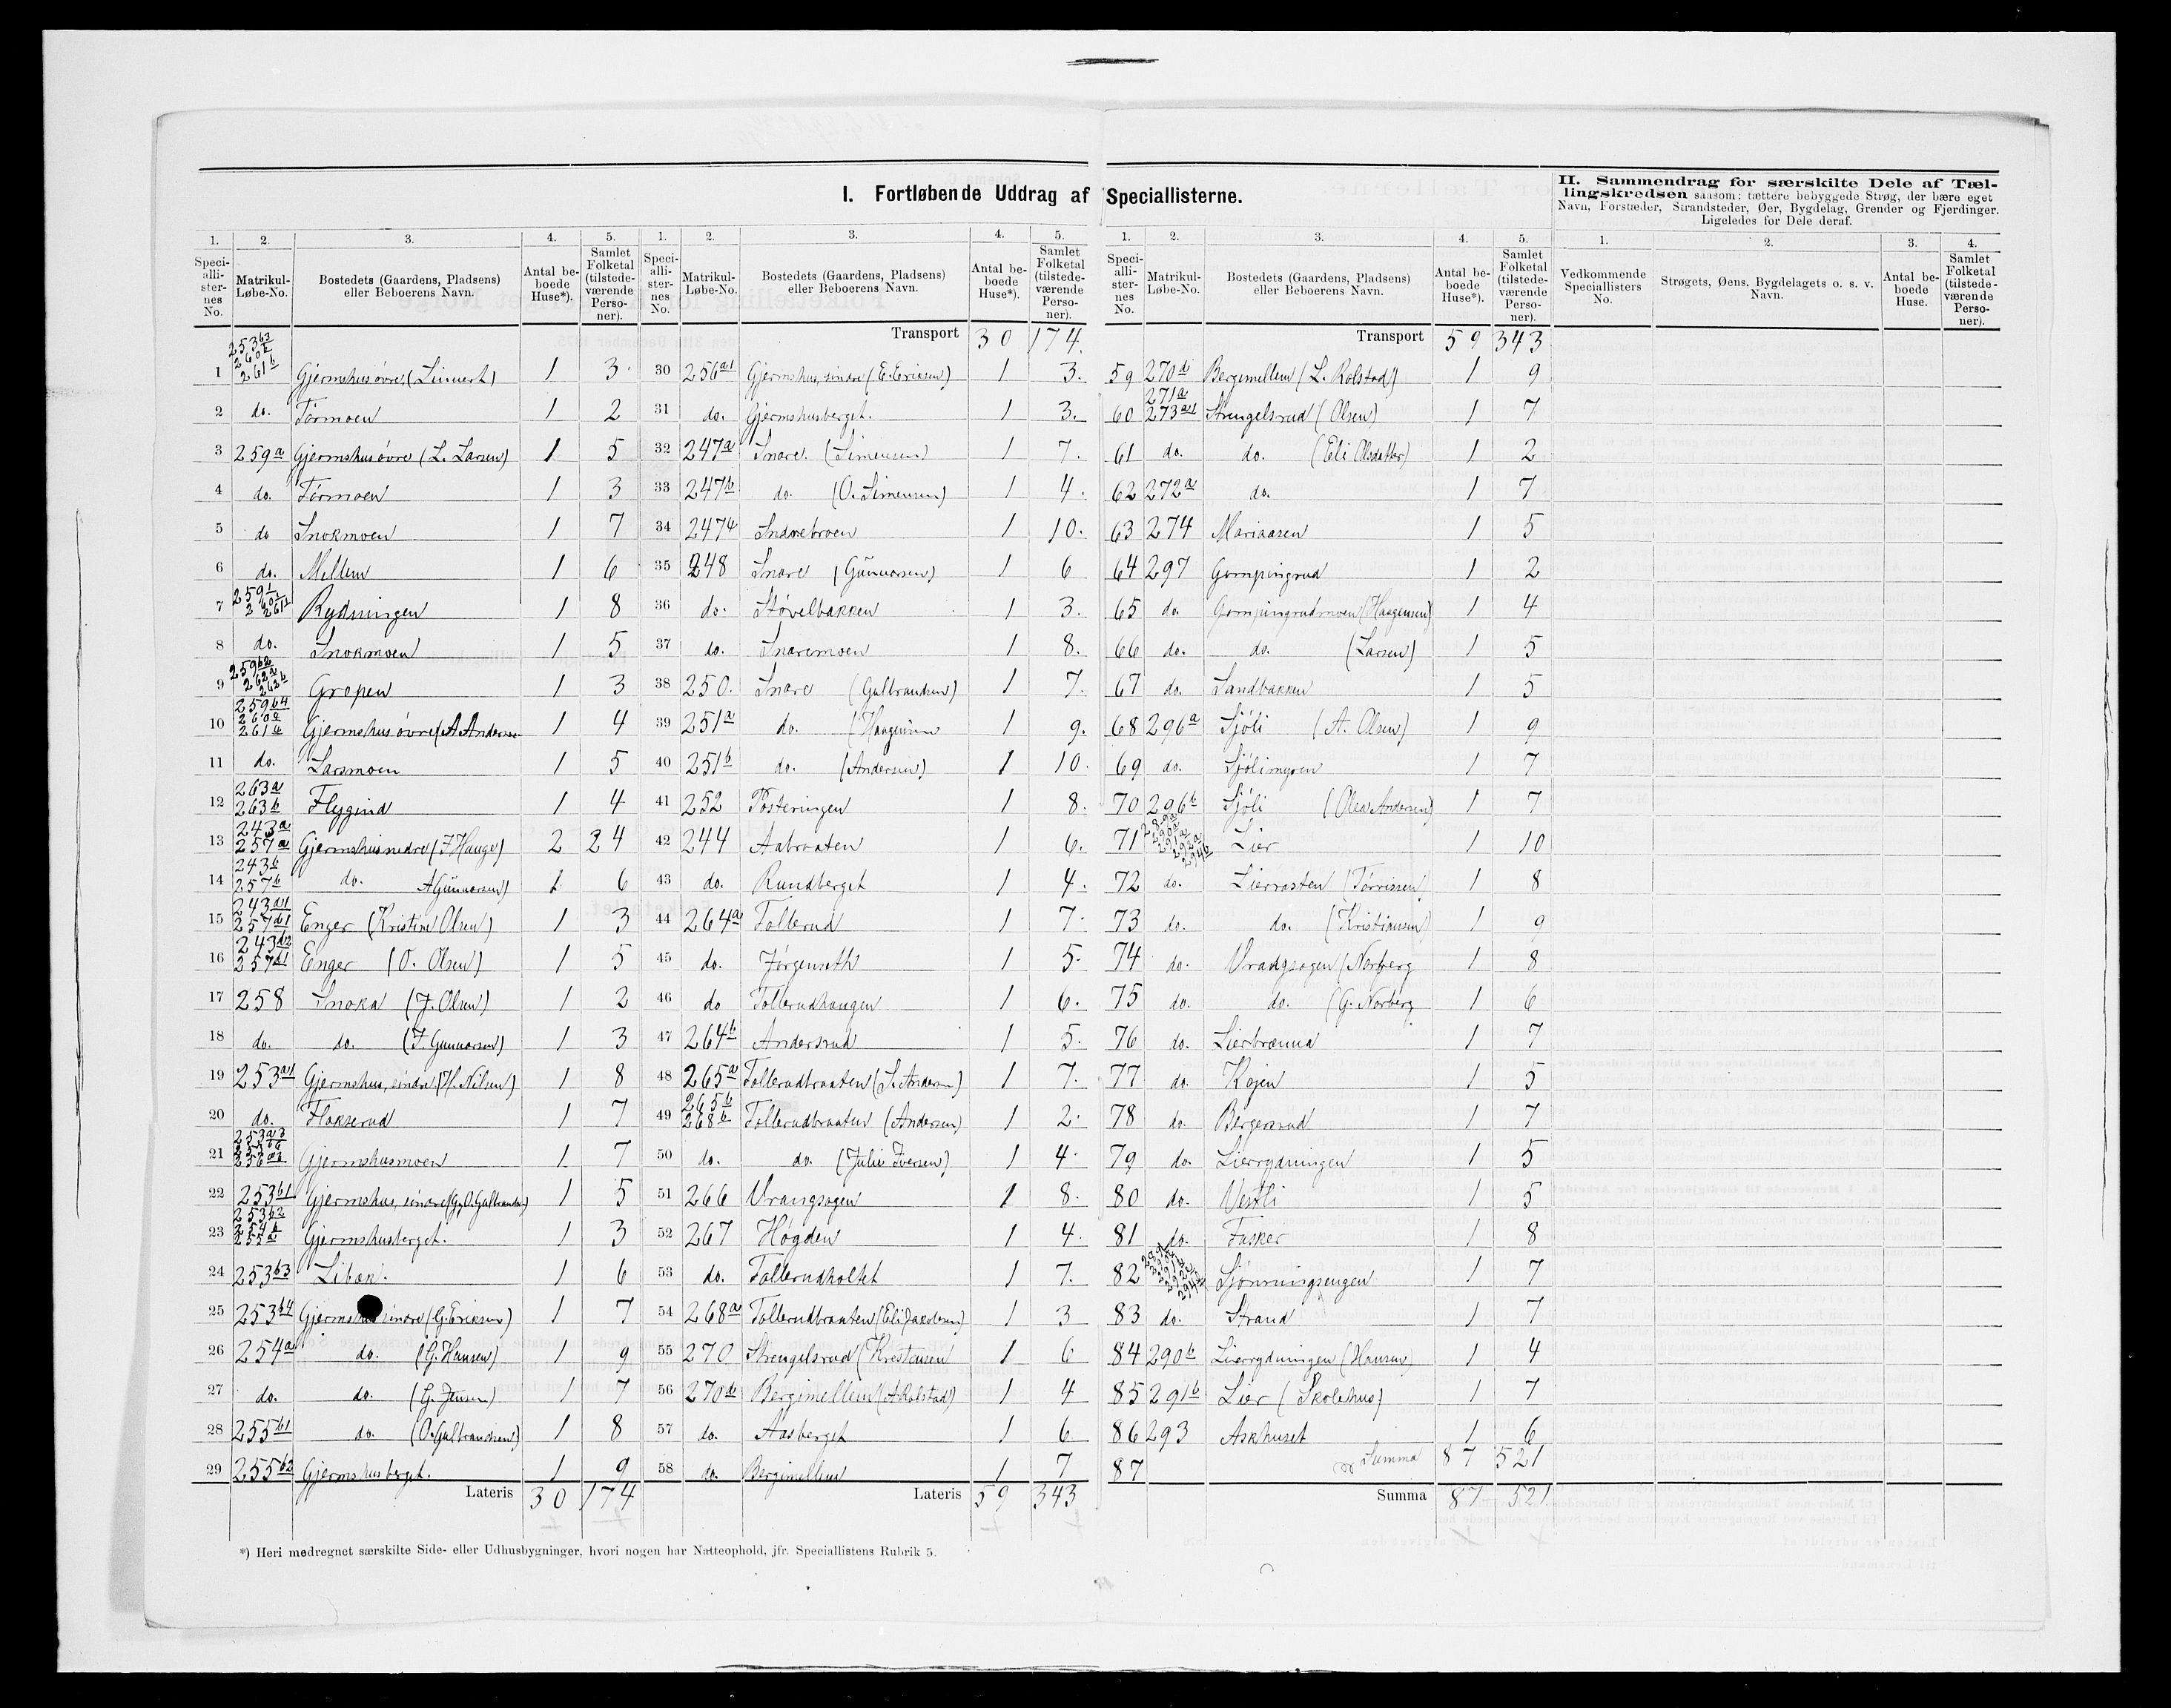 I. Fortløbende Uddrag af Speciallisterne.
II. Sammendrag for særskilte Dele af Tæl-
lingskredsen saasom: tættere bebyggede Strøg, der bære eget
Navn, Forstæder, Strandsteder, Øer, Bygdelag, Grender og Fjerdinger.
Ligeledes for Dele deraf.
1. Speci-alli-ster-nes No. 2. Matrikul-Løbe-No. 3. Bostedets (Gaardens, Pladsens) eller Beboerens Navn. 4. Antal be-boede Huse*). 5. Samlet Folketal (tilstede-værende Perso-ner).
1 253b3 260b 261b Gjermshus øvre (Linnert) 1 3
2 do. Tørmoen 1 2
3 259a Gjermshus øvre (L. Larsen) 1 5
4 do. Tørmoen 1 3
5 do Snokmoen 1 7
6 do. Mellem 1 6
7 Rydningen 1 8
8 do. Snokmoen 1 5
9 259b2 262a 263b Gropen 1 3
10 259b4 260c 261c Gjermshus øvre (A Andersen 1 4
11 do. Larsmoen 1 5
12 263a 263b Flygind 1 4
13 243a 257a Gjermshus nedre (F Hauge) 2 24
14 243b 257b do. A Gunnarsen) 1 6
15 243d1 257d1 Enger (Kristine Olsen) 1 3
16 243d2 257d1 Enger (O. Olsen) 1 5
17 258 Snoka (J. Olsen) 1 2
18 do. do. (J. Gunnarsen) 1 3
19 253a1 Gjermshus, søndre (H. Nilsen) 1 8
20 do. Flokserud 1 7
21 253a3 256a2 Gjermshusmoen 1 7
22 253b1 Gjermshus, søndre (G. O. Gulbrandsen) 1 5
23 253b2 254b 255a Gjermshusberget. 1 3
24 253b3 Libak. 1 6
25 253b4 søndre (G. Eriksen) 1 7
26 254a do. (G. Hansen) 1 9
27 do. do. (G. Jensen) 1 7
28 255b1 do. (O. Gulbrandsen) 1 8
29 255b2 Gjermshusberget. 1 9
Lateris 30 174
1. Speci-alli-ster-nes No. 2. Matrikul-Løbe-No. 3. Bostedets (Gaardens, Pladsens) eller Beboerens Navn. 4. Antal be-boede Huse*). 5. Samlet Folketal (tilstede-værende Perso-ner).
Transport 30 174.
30 256a1 Gjermshus, søndre (E. Eriksen) 1 3.
31 do. Gjermshusberget. 1 3.
32 247a Snare. (Simensen) 1 7.
33 247b do. (O. Simensen) 1 4.
34 247c Sndrebroen 1 10.
35 248 Snare (Gunnarsen) 1 6
36 do. Støvelbakken 1 3.
37 do. Snaremoen 1 8.
38 250. Snare (Gulbrandsen) 1 7.
39 251a do. (Haagensen 1 9.
40 251b do. (Andersen) 1 10.
41 252 Posteringen 1 8.
42 244 Aabraaten 1 6.
43 do. Rundberget 1 4.
44 264a Tollerud 1 7.
45 do. Jørgenseth 1 5.
46 do Tollerudhaugen 1 6.
47 264b Andersrud 1 5.
48 265a Tollerudbraaten (S. Andersen) 1 7.
49 265b 268b Tollerudbraaten (Andersen) 1 2.
50 do. do. (Julie Iversen) 1 4.
51 266 Vrangsagen 1 8.
52 267 Høgden 1 4.
53 do. Tollerudholtet 1 7.
54 268a Tollerudbraaten (Eli Jakobsen) 1 3
55 270 Strengelsrud (Krestensen 1 6
56 270d Bergimellem (A Rolstad) 1 4
57 do. Aasberget 1 6
58 do. Bergimellem 1 7
Lateris 59 343
1. Speci-alli-ster-nes No. 2. Matrikul-Løbe-No. 3. Bostedets (Gaardens, Pladsens) eller Beboerens Navn. 4. Antal be-boede Huse*). 5. Samlet Folketal (tilstede-værende Perso-ner).
Transport 59 343
59 270d Bergimellem (L. Rolstad) 1 9
60 271a 273a1 Strengelsrud (Olsen) 1 7
61 do. do. (Eli Olsdatter) 1 2
62 272a do. 1 7
63 274 Mariaasen 1 5
64 297 Gompingrud 1 2
65 do. Gompingrudmoen (Haagensen) 1 4
66 do. do. (Larsen) 1 5
67 do. Sandbakken 1 5
68 296a Sjöli (A. Olsen) 1 9
69 do. Sjölimyren 1 7
70 296b Sjöli (Olea Andersen) 1 7
71 289a 290a 291a 292a 294b Lier 1 10
72 do. Lierrasten (Tørrissen 1 8
73 do. do. (Kristiansen) 1 9
74 do. Vrangsagen (Norberg 1 8
75 do. do. (G. Norberg 1 6
76 do. Lierbrænna 1 7
77 do. Kojen 1 5
78 do. Bergersrud 1 7
79 do. Lierrydningen 1 5
80 do. Vestli 1 5
81 do. Fasker 1 8
82 Sjönningsengen 1 7
83 do. Strand 1 7
84 290b Lierrydningen (Hansen) 1 4
85 291b Lier (Skolehus) 1 7
86 293 Askhuset 1 6
87 Summa 87 521
Summa 87 521
1. Vedkommende Speciallisters No. 2. Strøgets, Øens, Bygdelagets o. s. v. Navn. 3. Antal be-boede Huse. 4. Samlet Folketal (tilstede-værende Perso-ner).
*) Heri medregnet særskilte Side- eller Udhusbygninger, hvori nogen har Natteophold, jfr. Speciallistens Rubrik 5.